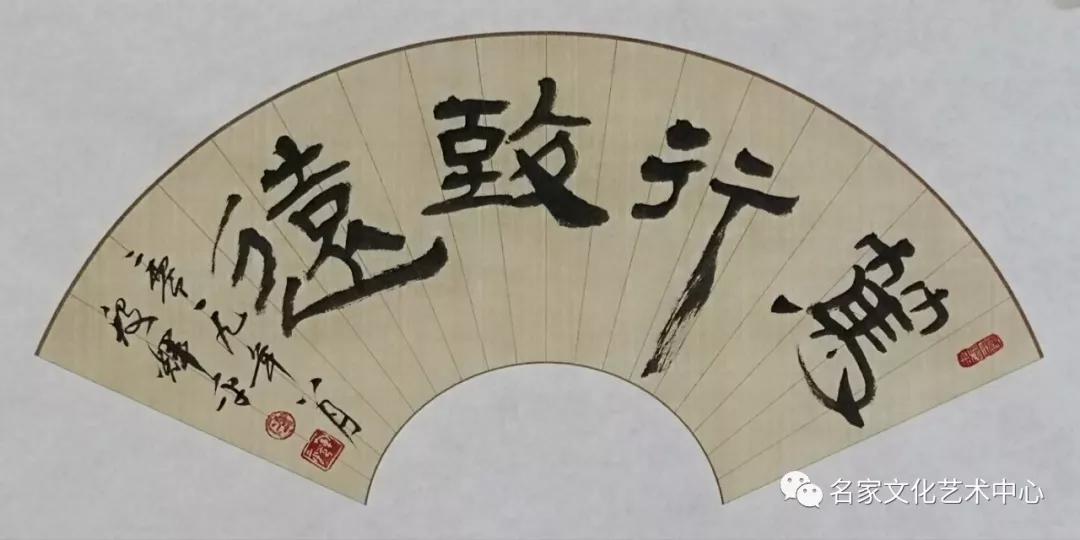 篤行致遠
二零一九年八月
名家文化艺术中心